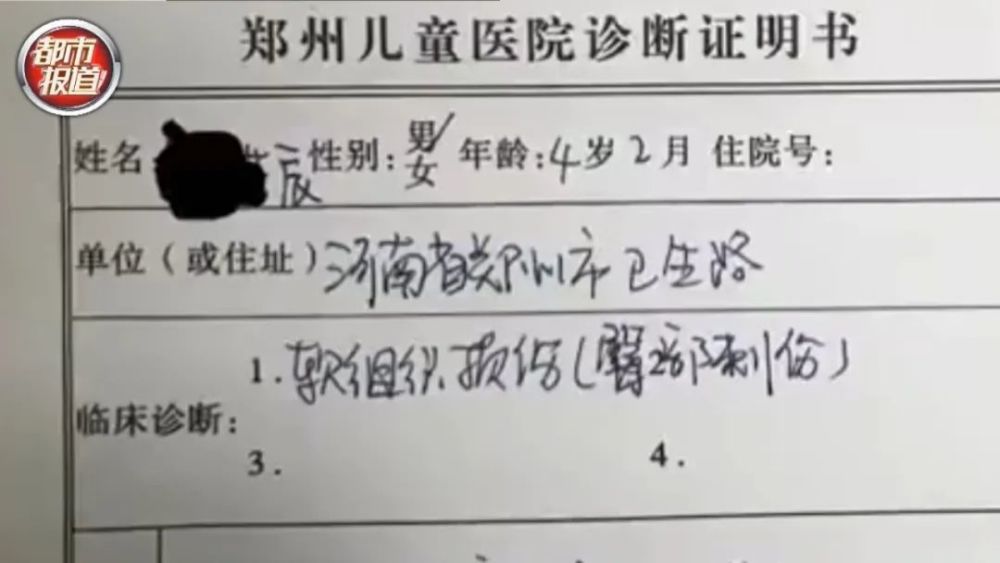 都市
报道
郑州儿童医院诊断证明书
姓名 辰 性别: 男/女 年龄: 4岁2月 住院号:
单位(或住址) 河南省郑州市卫生路
1. 软组织损伤(臀部刺伤)
临床诊断:
3. 4.